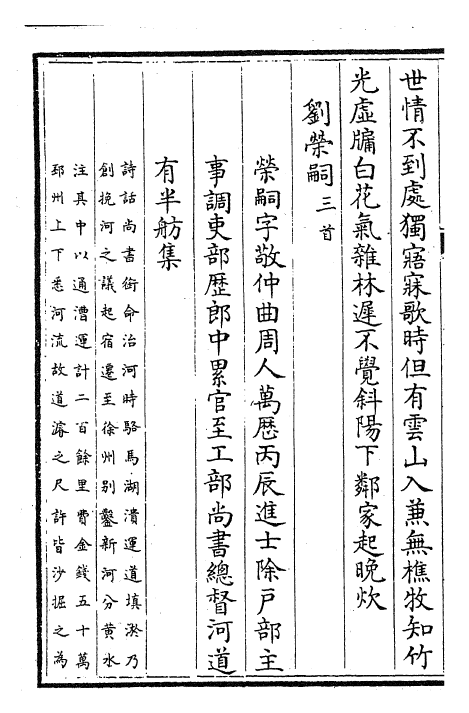 世情不到處獨寤寐歌時但有雲山入兼無樵牧知竹
光虛牖白花氣雜林遲不覺斜陽下鄰家起晚炊
劉榮嗣三首
榮嗣字敬仲曲周人萬厯丙辰進士除戸部主
事調吏部歴郎中累官至工部尚書總督河道
有半舫集
詩話尚書銜命治河時駱馬湖潰運道填淤乃
創挽河之議起宿遷至徐州别鑿新河分黄水
注其中以通漕運計二百餘里費金錢五十萬
邳州上下悉河流故道濬之尺許皆沙掘之為